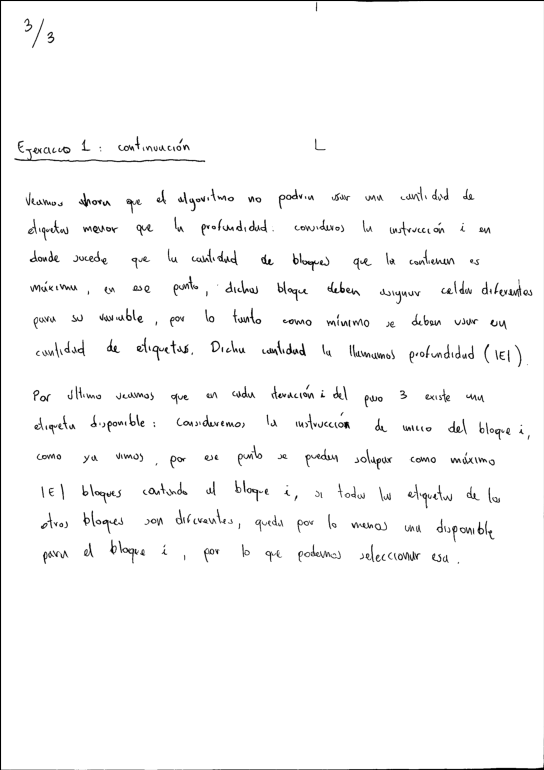 3/3
Ejercicio 1: continuación
L
Veamos ahora que el algoritmo no podría usar una cantidad de
etiquetas menor que la profundidad. consideros la instrucción i en
donde sucede que la cantidad de bloques que la contienen es
máxima, en ese punto, dichas bloque deben asignar celdas diferentes
para su variable, por lo tanto como mínimo se deben usar eu
cantidad de etiquetas. Dicha cantidad la llamamos profundidad (|E|)
Por último veamos que en cada iteración i del paso 3 existe una
etiqueta disponible: Consideremos la instrucción de inicio del bloque i,
como ya vimos, por ese punto se pueden solapar como máximo
|E| bloques contando al bloque i, si todas las etiquetas de los
otros bloques son diferentes, queda por lo menos una disponible
para el bloque i, por lo que podemos seleccionar esa.